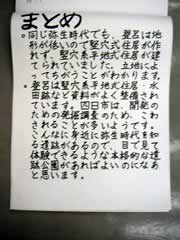 まとめ
○同じ弥生時代でも、登呂は地
形が低いので竪穴式住居が作
れず、竪穴系平地式住居が建
てられていました。立地によ
ってちがうことがわかります。
○登呂は竪穴系平地式住居・水
田跡など資料がよく整備され
ています。四日市は、開発のため
の発掘調査のため、こわ
されることが多いようです。
こんなに身近に弥生時代を知
る遺跡があるので、目で見て
体験できるような本格的な遺
跡公園があればよいのになあ
と思います。